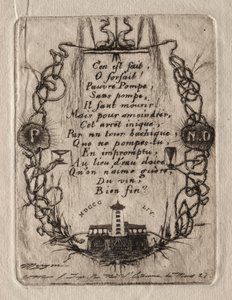 C'en est fait,
O forfait!
Pauvre Pompe,
Sans pompe,
Il faut mourir!
Mais pour amoindrir,
Cet arrêt inique,
Par un tour bachique,
Que ne pompes-tu,
En impromptu,
Au lieu d'eau claire,
Qu'on n'aime guère,
Du vin!
Bien fin?
P
N.D
MDCCC
LIV.